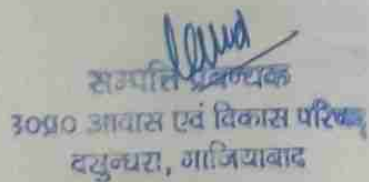 सम्पत्ति प्रबन्धक
उ0प्र0 आवास एवं विकास परिषद्
वसुन्धरा, गाजियाबाद